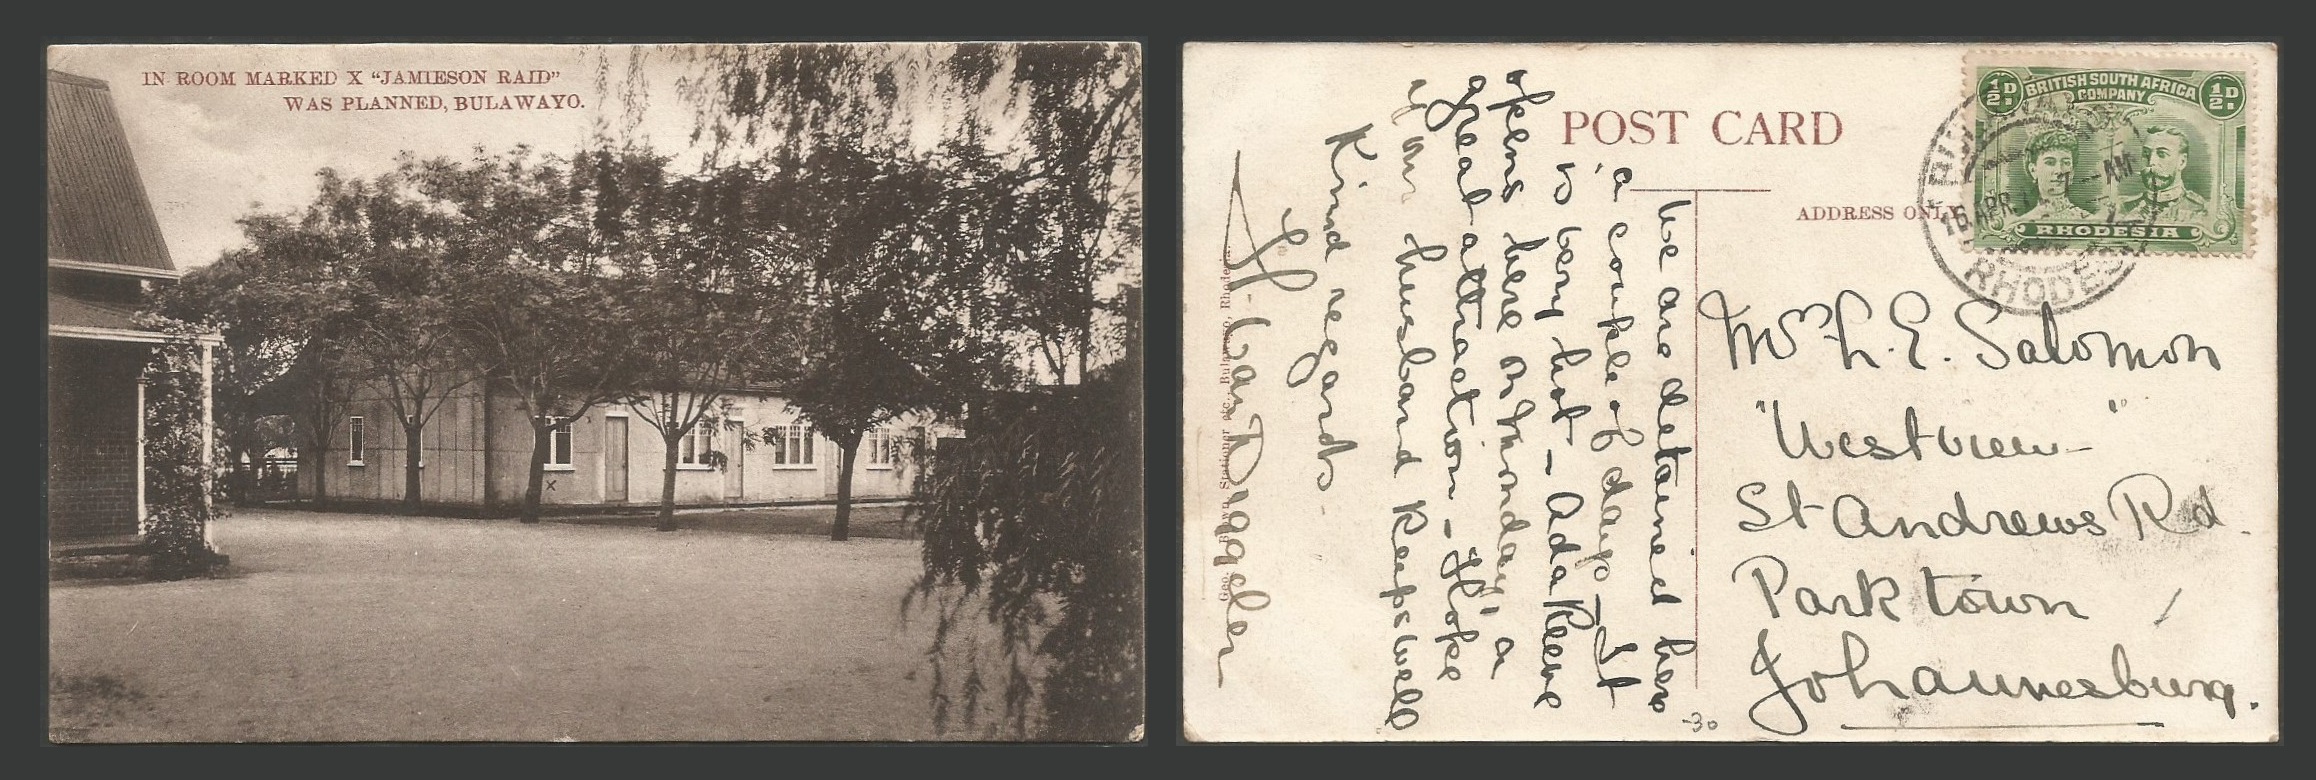 IN ROOM MARKED X "JAMIESON RAID"
WAS PLANNED, BULAWAYO.
x
POST CARD
ADDRESS ONLY
½D BRITISH SOUTH AFRICA ½D
COMPANY
RHODESIA
16 APR 7-AM
RHODES
We are detained here
a couple of days - It
is very hot - Ada Reeve
opens here on Monday, a
great attraction - Hope
your husband keeps well
Kind regards
Mrs L. E. Salomon
"Westview"
St Andrews Rd.
Park town
Johannesburg.
-30